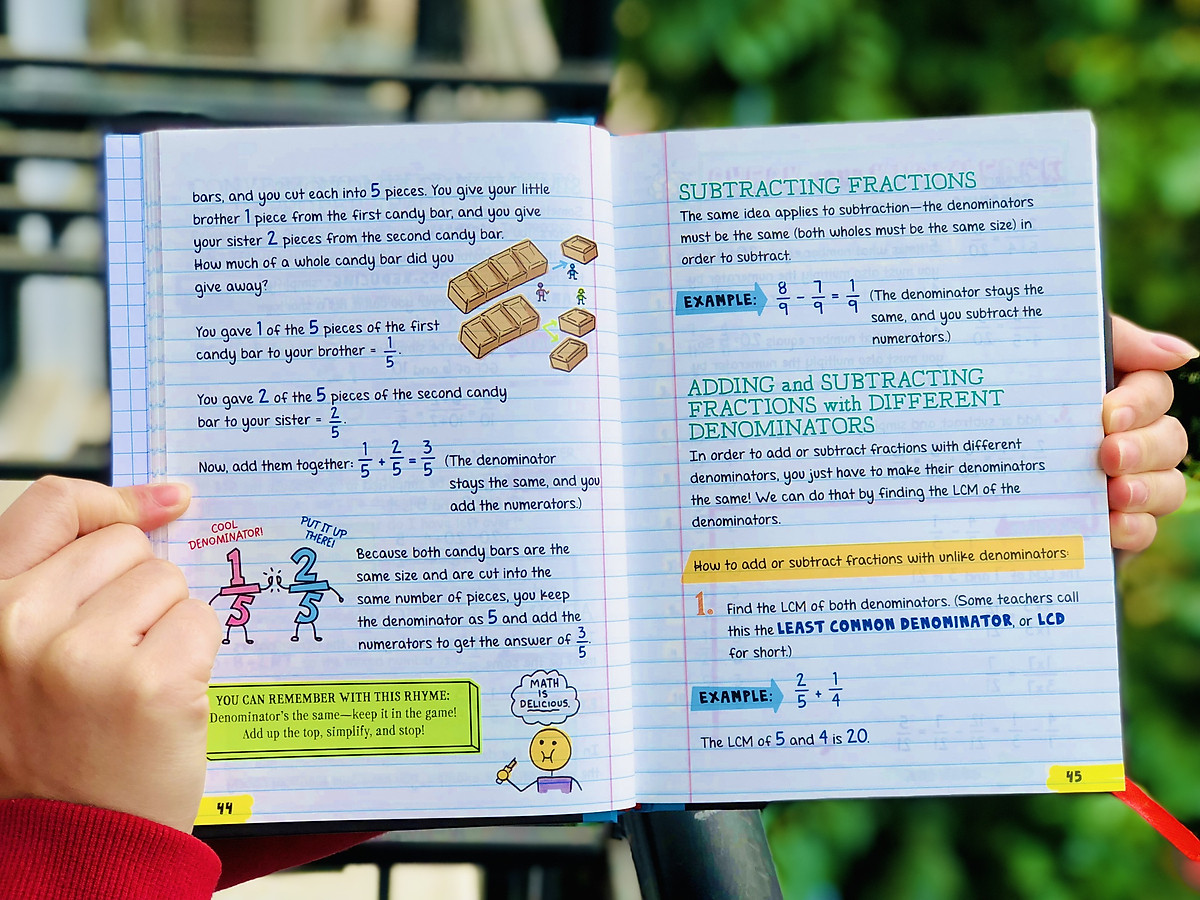 bars, and you cut each into 5 pieces. You give your little
brother 1 piece from the first candy bar, and you give
your sister 2 pieces from the second candy bar.
How much of a whole candy bar did you
give away?
You gave 1 of the 5 pieces of the first
candy bar to your brother = 1/5.
You gave 2 of the 5 pieces of the second candy
bar to your sister = 2/5.
Now, add them together: 1/5 + 2/5 = 3/5 (The denominator
stays the same, and you
add the numerators.)
COOL
DENOMINATOR!
PUT IT UP
THERE!
1/5 2/5
Because both candy bars are the
same size and are cut into the
same number of pieces, you keep
the denominator as 5 and add the
numerators to get the answer of 3/5.
YOU CAN REMEMBER WITH THIS RHYME:
Denominator's the same—keep it in the game!
Add up the top, simplify, and stop!
MATH
IS
DELICIOUS.
44
SUBTRACTING FRACTIONS
The same idea applies to subtraction—the denominators
must be the same (both wholes must be the same size) in
order to subtract.
EXAMPLE: 8/9 - 7/9 = 1/9 (The denominator stays the
same, and you subtract the
numerators.)
ADDING and SUBTRACTING
FRACTIONS with DIFFERENT
DENOMINATORS
In order to add or subtract fractions with different
denominators, you just have to make their denominators
the same! We can do that by finding the LCM of the
denominators.
How to add or subtract fractions with unlike denominators:
1. Find the LCM of both denominators. (Some teachers call
this the LEAST COMMON DENOMINATOR, or LCD
for short.)
EXAMPLE: 2/5 + 1/4
The LCM of 5 and 4 is 20.
45